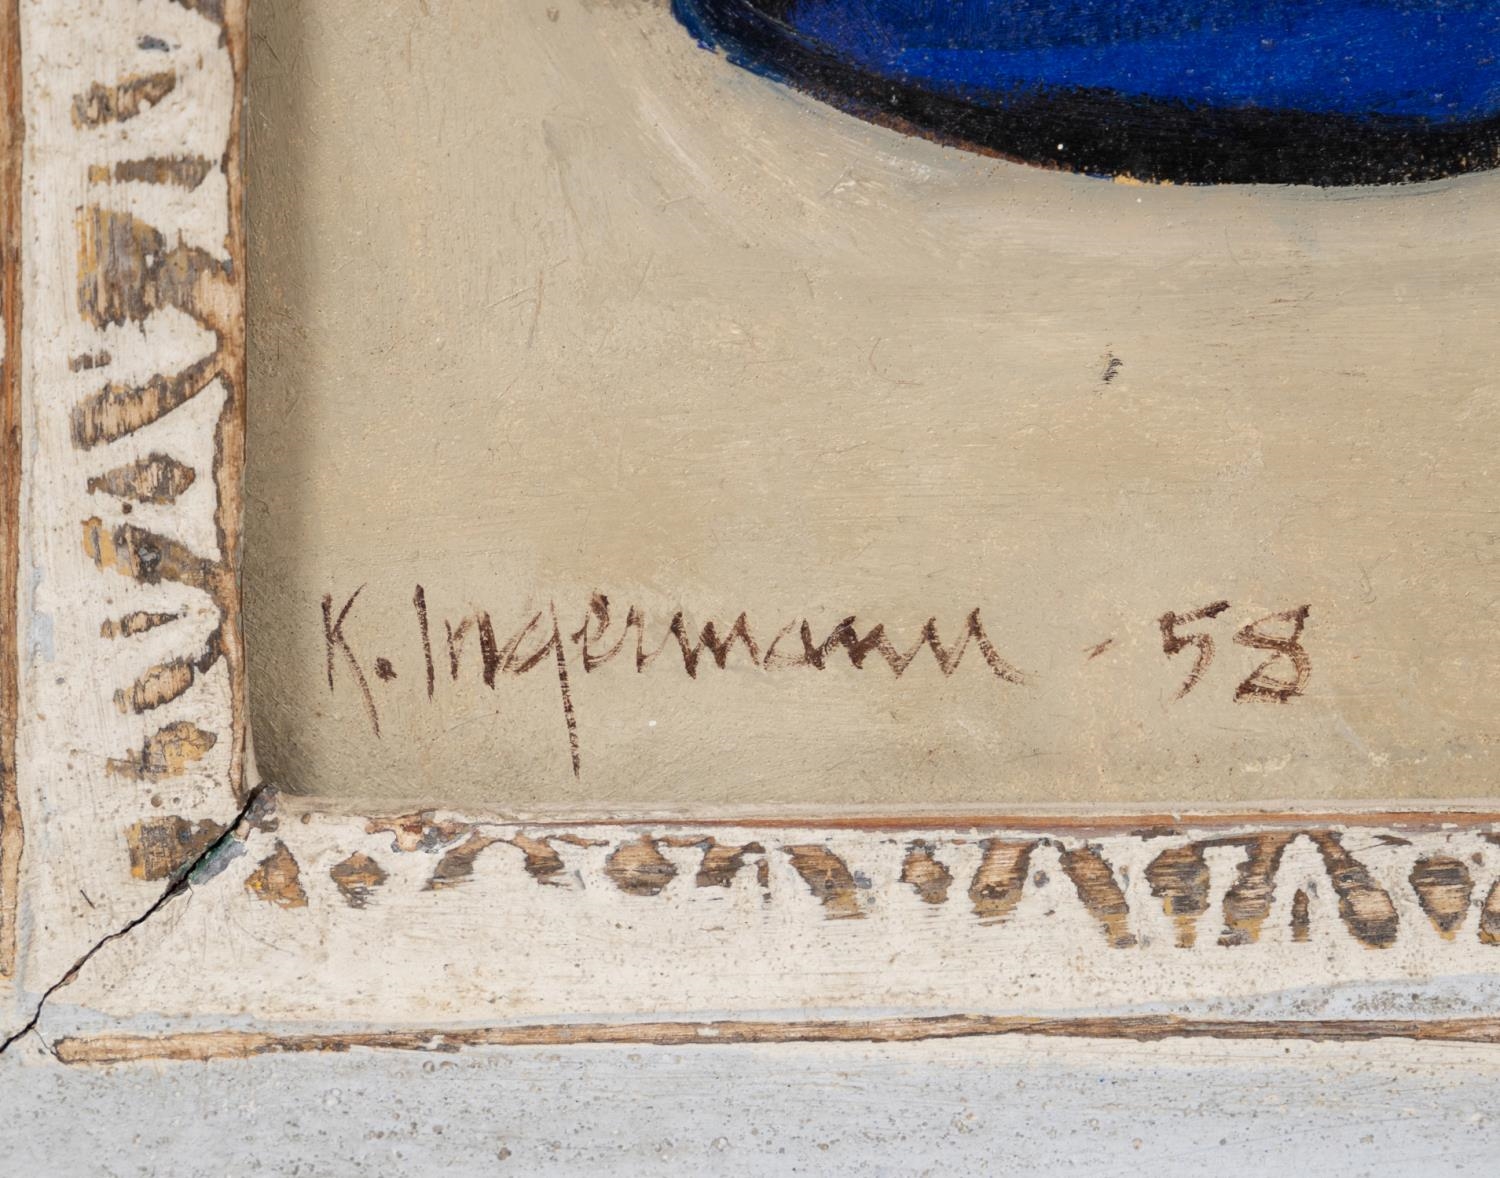 K. Ingermann - 58